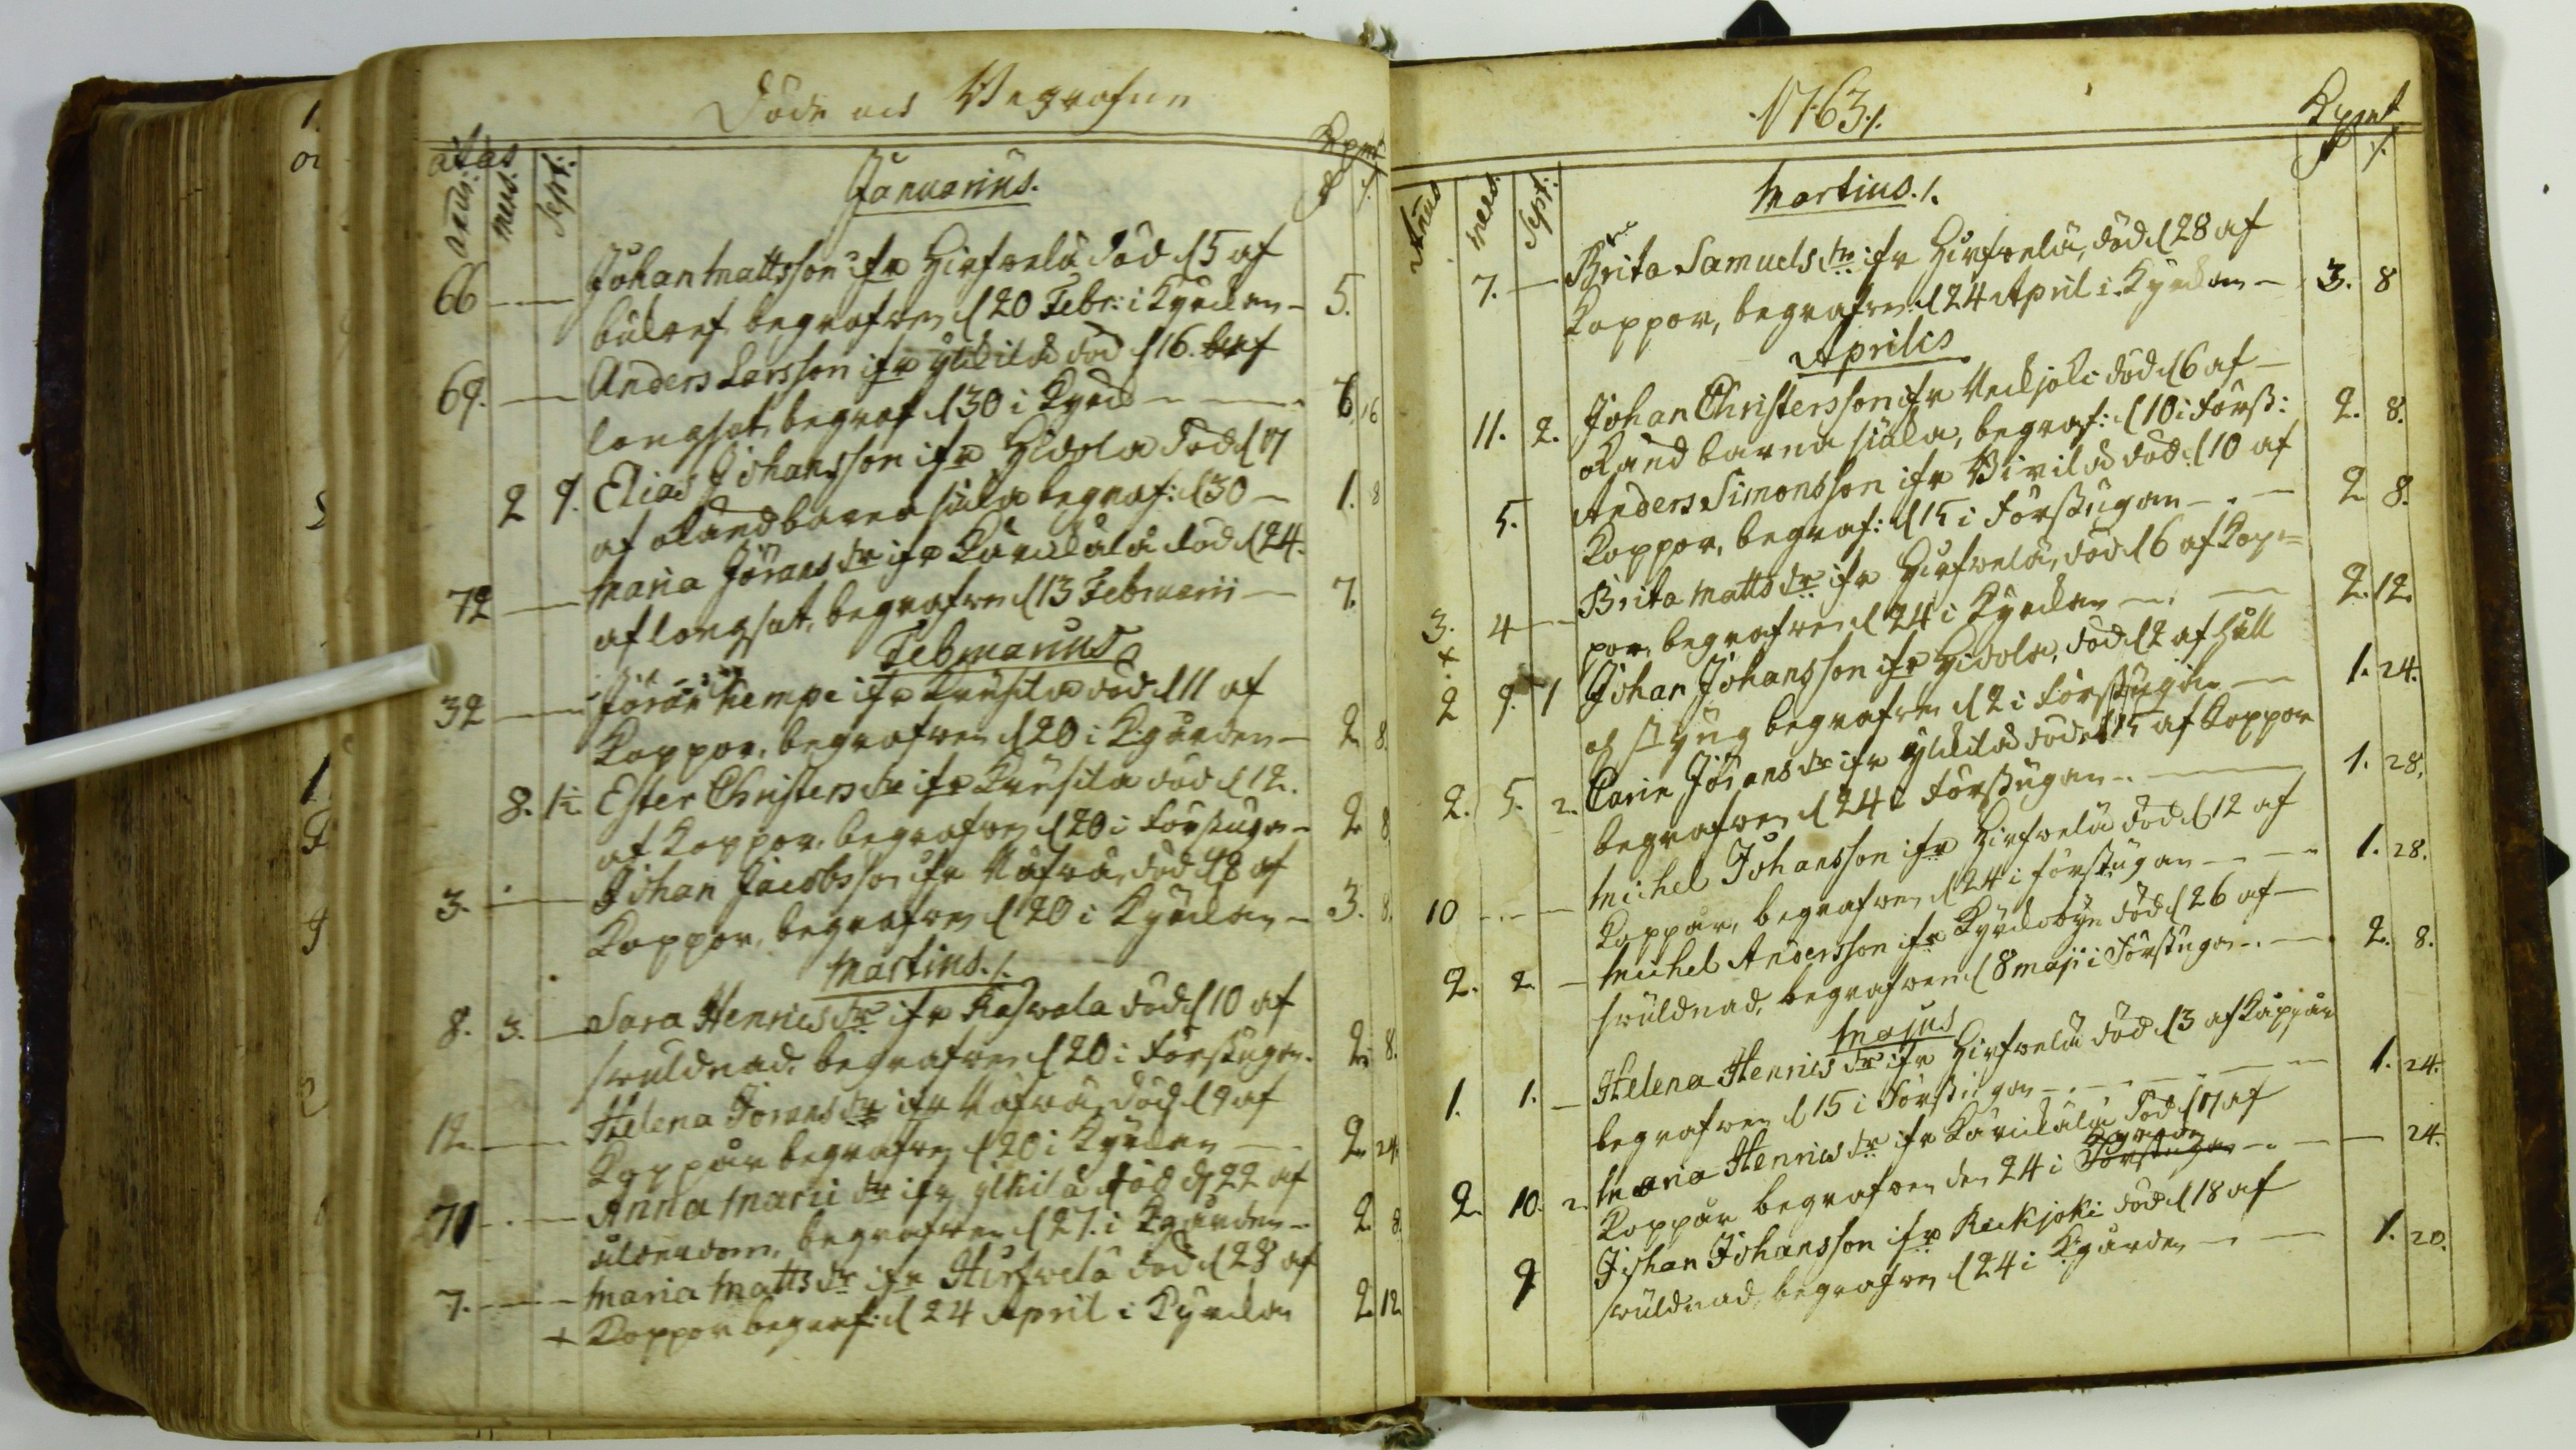 Döde och Begrafne
ætas
annus. mens. sept.
Kpmt
Januarius.
66 — Johan Mattsson ifr Hirfvelä död d 15 af
bulnst, begrafven d 20 Febr: i Kyrckan — 5.
69. — Anders Larsson ifr Ylikilä död d 16. af
långsot, begraf d 30 i Kyrck — 6 16
2 9. Elias Johansson ifr Hidola död d 17
af okänd barnasiuka begraf: d 30 — 1. 8
72 — Maria Jörans dr ifr Karickala död d 24.
af långsot, begrafven d 13 Februarii — 7.
Februarius
32 — Jöran Kempe ifr Krusila död d 11 af
Koppor, begrafven d 20 i Kgården — 2 8.
8. 1½ Ester Christers dr ifr Krusila död d 12.
af Koppor, begrafven d 20 i Förstugan — 2 8
3. — Johan Jacobsson ifr Nåfwa, död d 8 af
Koppor, begrafven d 20 i Kyrckan — 3. 8.
Martius./.
8. 3. — Sara Henrics dr ifr Kaswala död d 10 af
svuldnad, begrafven d 20 i Förstugan. 2. 8.
12. — Helena Jörans dr ifr Nåfwa, död d 9 af
Koppår begrafven d 20 i Kyrckan — 2. 24.
71. — Anna Marci dr ifr Ylikilä död d 22 af
ålderdom, begrafven d 27. i Kgården — 2 8.
7. — Maria Matts dr ifr Hirfvelä död d 28 af
+ Koppor begraf: d 24 April i Kyrckan 2. 12
1763./.
Kpmt
Annus mens: Sept:
Martius./.
7. — Brita Samuels dr ifr Hirfvelä, död d 28 af
Koppor, begrafven d 24 April i Kyrckan — 3. 8
Aprilis
11. 2. Johan Christersson ifr Reckjoki död d 6 af —
okänd barna siuka, begraf: d 10 i Först: 2. 8.
5. Anders Simonsson ifr Virilä död d 10 af
Koppor, begraf: d 15 i Förstugan — 2 8.
3. 4 — Brita Matts dr ifr Hirfvelä, död d 6 af Kop=
por, begrafven d 24 i Kyrckan — 2. 12.
+ 2 9. 1 Johan Johansson ifr Hidola, död d 2 af håll
och styng begrafven d 2 i Förstugan — 1. 24.
2. 5. 2. Carin Jörans dr ifr Ylikilä död d 15 af Koppor
begrafven d 24 i Förstugan — 1. 28.
10 — Michel Johansson ifr Hirfvelä död d 12 af
Koppår, begrafven d 24 i förstugan — 1. 28.
2. 2. — Michel Andersson ifr Kyrckobyn död d 26 af —
svuldnad, begrafven d 8 maji i Förstugan — 2. 8.
Majus
1. 1. — Helena Henrics dr ifr Hirfvelä död d 3 af Kåppår
begrafven d 15 i Förstugan — 1. 24.
2. 10. 2. Maria Henrics dr ifr Karickala död d 17 af
Koppår begrafven den 24 i Förstugan Kgården — 24.
9 Johan Johansson ifr Reckjoki död d 18 af
svuldnad, begrafven d 24 i Kgården — 1. 20.